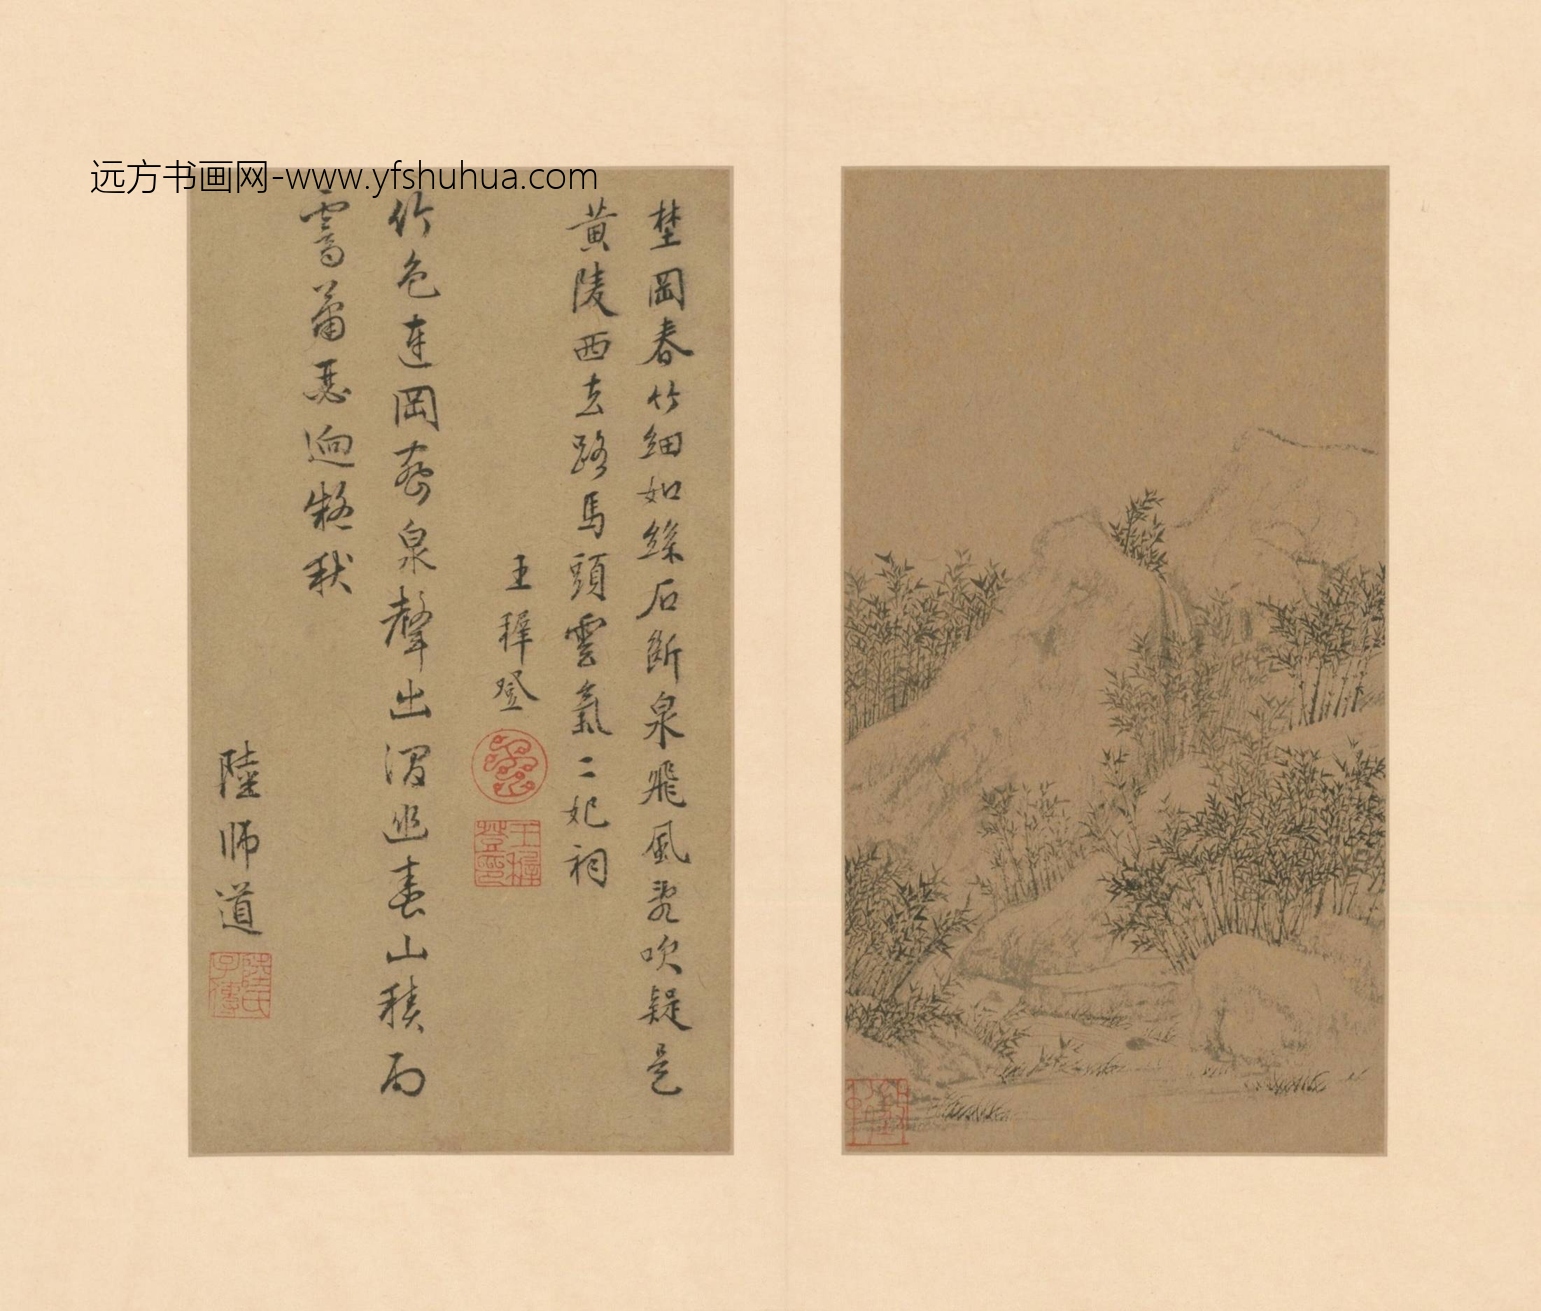 远方书画网-www.yfshuhua.com
埜岡春竹細如絲石斷泉飛風亂吹疑是
黄陵西去路馬頭雲氣二妃祠
王穉登
王穉登印
竹色連岡夜泉聲出澗幽春山積雨
霽蕭瑟迥疑秋
陸師道
陸氏子傳